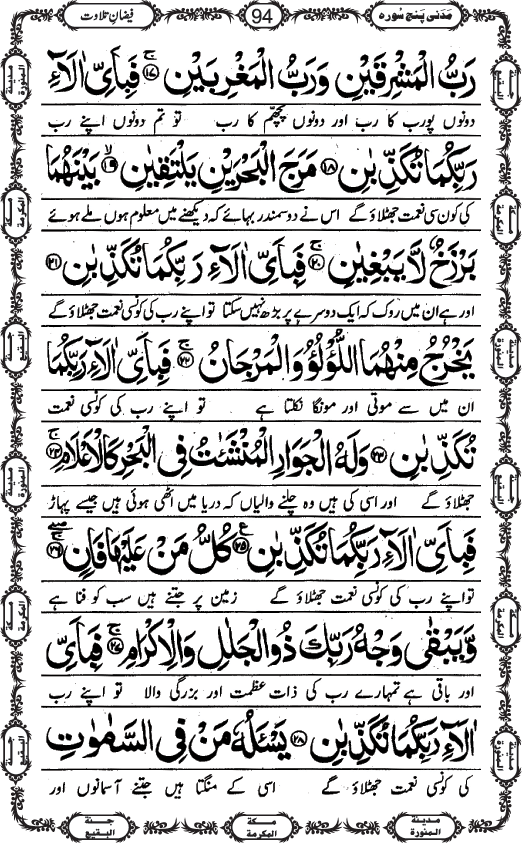 مَدَنی پنج سُورہ
94
فیضانِ تلاوت
رَبُّ الْمَشْرِقَیْنِ وَرَبُّ الْمَغْرِبَیْنِ ۚ﴿۱۷﴾ فَبِاَیِّ اٰلَآءِ
دونوں پورب کا رب اور دونوں پچھّم کا رب تو تم دونوں اپنے رب
رَبِّکُمَا تُکَذِّبٰنِ ﴿۱۸﴾ مَرَجَ الْبَحْرَیْنِ یَلْتَقِیٰنِ ۙ﴿۱۹﴾ بَیْنَهُمَا
کی کون سی نعمت جھٹلاؤ گے اس نے دو سمندر بہائے کہ دیکھنے میں معلوم ہوں ملے ہوئے
بَرْزَخٌ لَّا یَبْغِیٰنِ ۚ﴿۲۰﴾ فَبِاَیِّ اٰلَآءِ رَبِّکُمَا تُکَذِّبٰنِ ﴿۲۱﴾
اور ہے ان میں روک کہ ایک دوسرے پر بڑھ نہیں سکتا تو اپنے رب کی کونسی نعمت جھٹلاؤ گے
یَخْرُجُ مِنْهُمَا اللُّؤْلُؤُ وَالْمَرْجَانُ ۚ﴿۲۲﴾ فَبِاَیِّ اٰلَآءِ رَبِّکُمَا
ان میں سے موتی اور مونگا نکلتا ہے تو اپنے رب کی کونسی نعمت
تُکَذِّبٰنِ ﴿۲۳﴾ وَلَهُ الْجَوَارِ الْمُنْشَـٰٔتُ فِی الْبَحْرِ کَالْاَعْلَامِ ۚ﴿۲۴﴾
جھٹلاؤ گے اور اسی کی ہیں وہ چلنے والیاں کہ دریا میں اٹھی ہوئی ہیں جیسے پہاڑ
فَبِاَیِّ اٰلَآءِ رَبِّکُمَا تُکَذِّبٰنِ ﴿۲۵﴾ کُلُّ مَنْ عَلَیْهَا فَانٍ ۚ﴿۲۶﴾
تو اپنے رب کی کونسی نعمت جھٹلاؤ گے زمین پر جتنے ہیں سب کو فنا ہے
وَّیَبْقٰی وَجْهُ رَبِّكَ ذُو الْجَلٰلِ وَالْاِکْرَامِ ۚ﴿۲۷﴾ فَبِاَیِّ
اور باقی ہے تمہارے رب کی ذات عظمت اور بزرگی والا تو اپنے رب
اٰلَآءِ رَبِّکُمَا تُکَذِّبٰنِ ﴿۲۸﴾ یَسْـَٔلُهٗ مَنْ فِی السَّمٰوٰتِ
کی کونسی نعمت جھٹلاؤ گے اسی کے منگتا ہیں جتنے آسمانوں اور
مدینة المنورة
مکة المکرمة
جنة البقیع